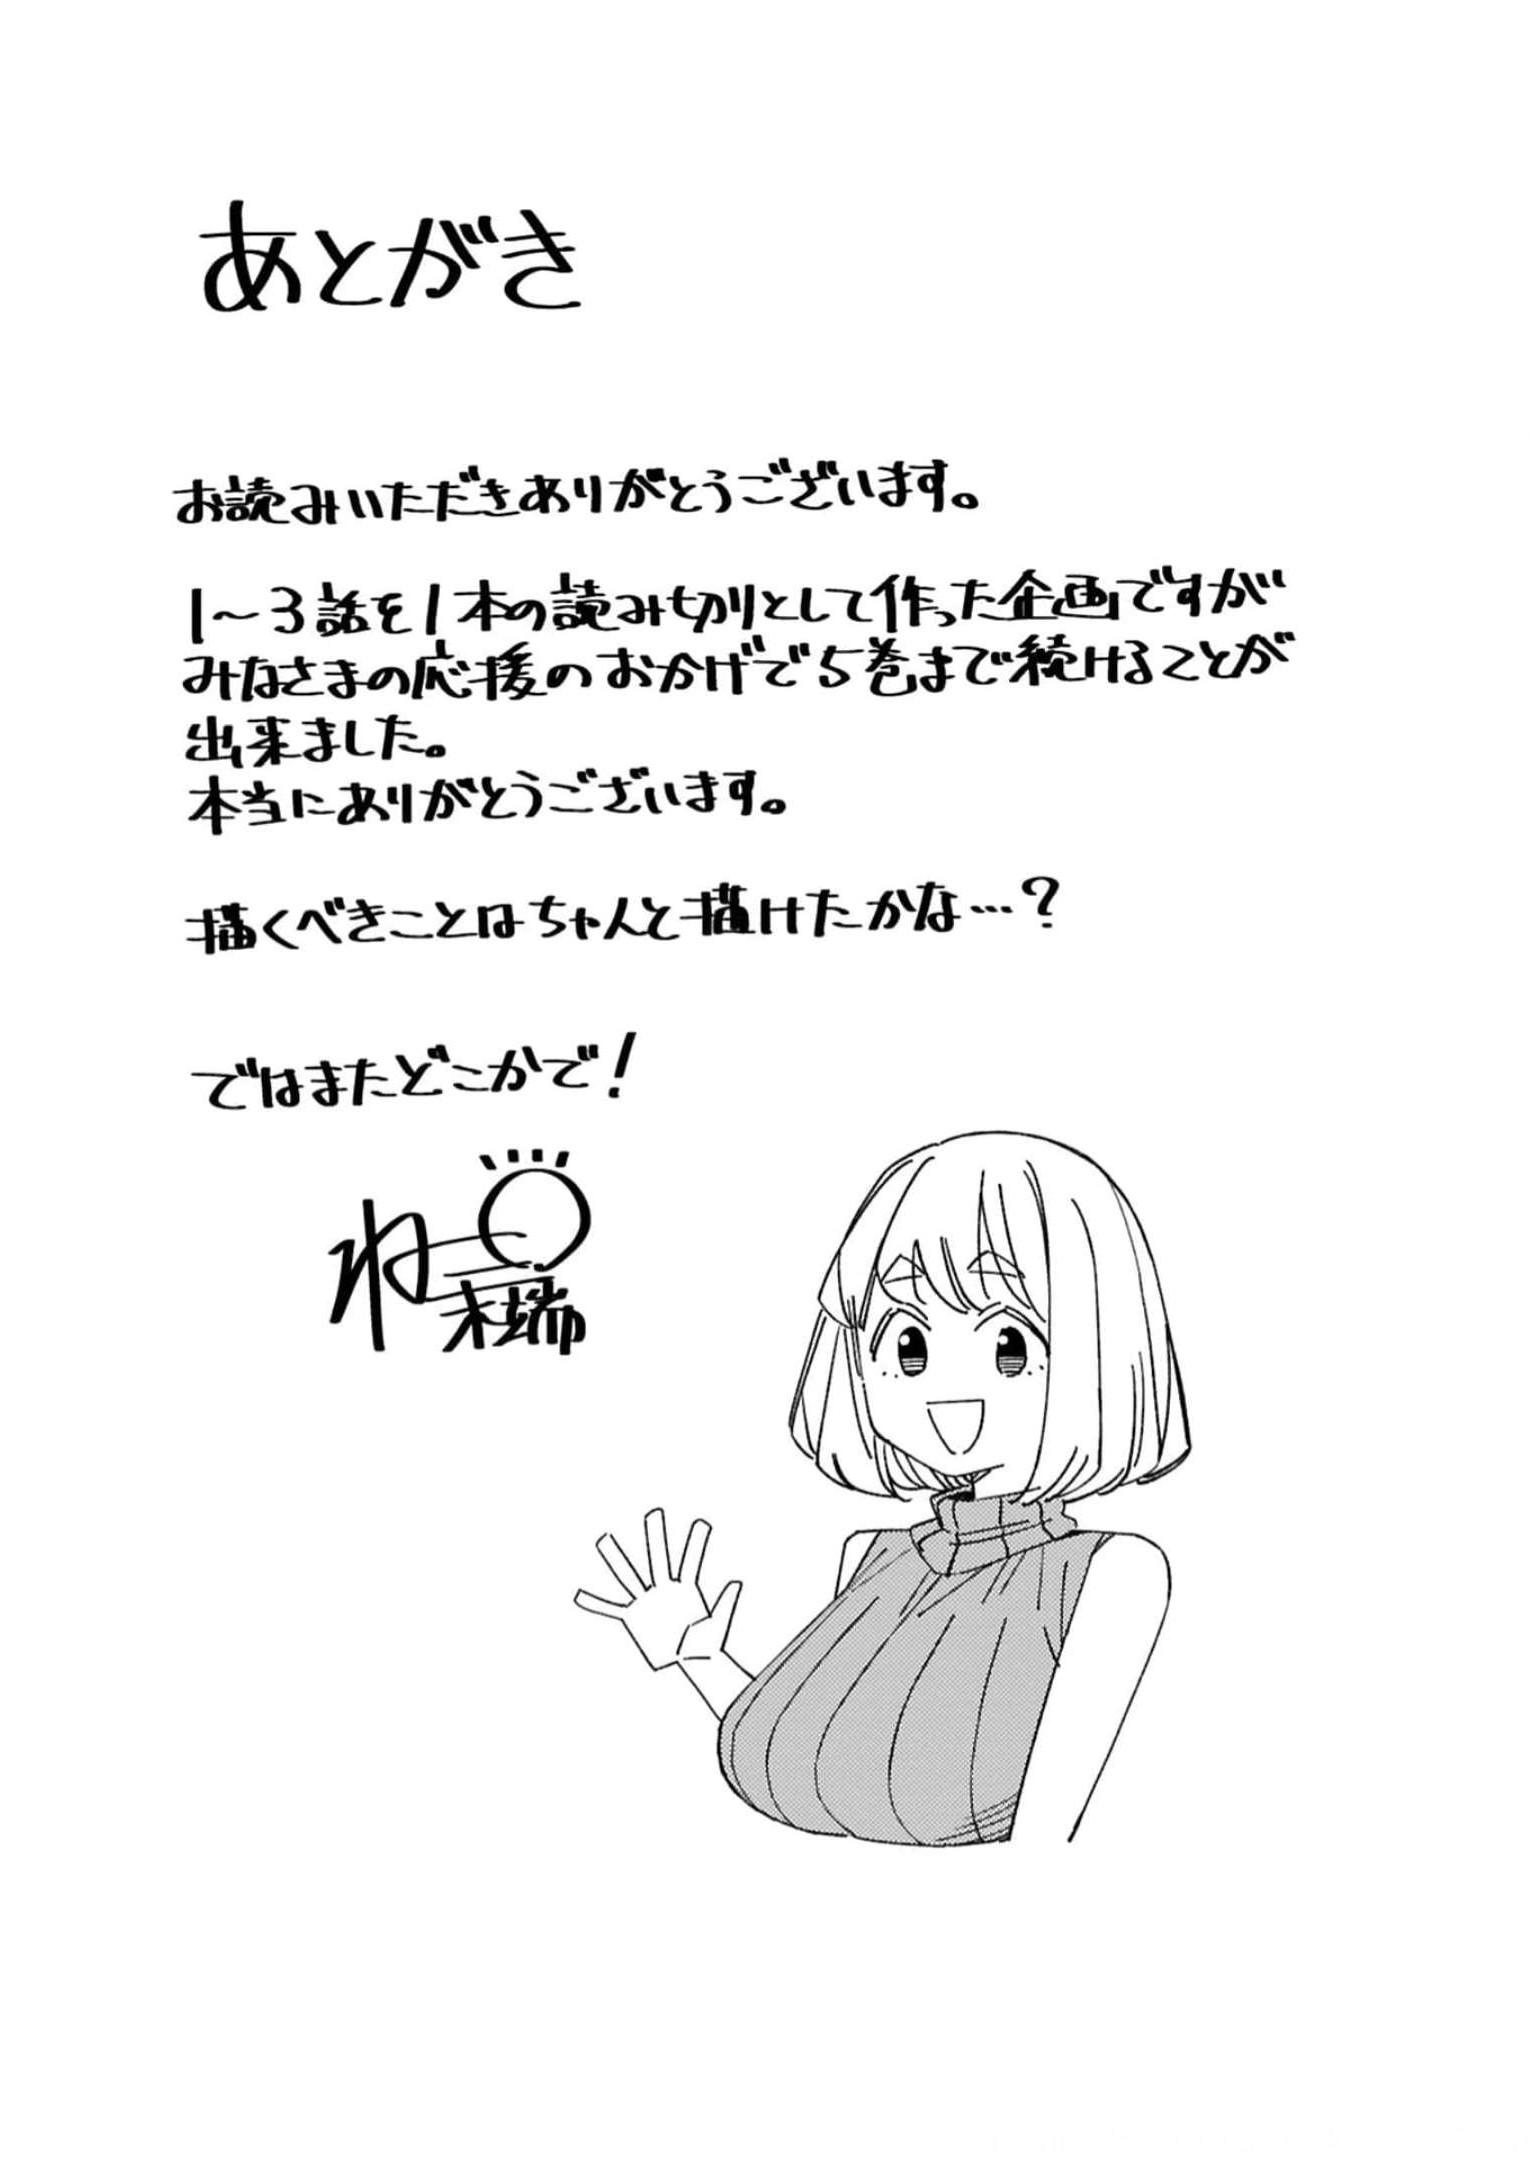 あとがき
お読みいただきありがとうございます。
1〜3話を1本の読み切りとして作った企画ですが
みなさまの応援のおかげで5巻まで続けることが
出来ました。
本当にありがとうございます。
描くべきことはちゃんと描けたかな…?
ではまたどこかで!
末端